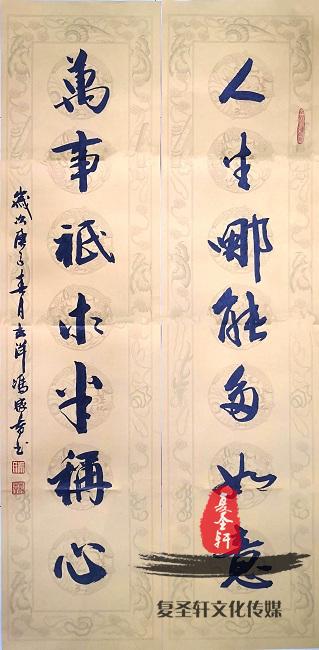 人生哪能多如意
萬事祇求半稱心
歲次庚子春月
复圣轩
复圣轩文化传媒